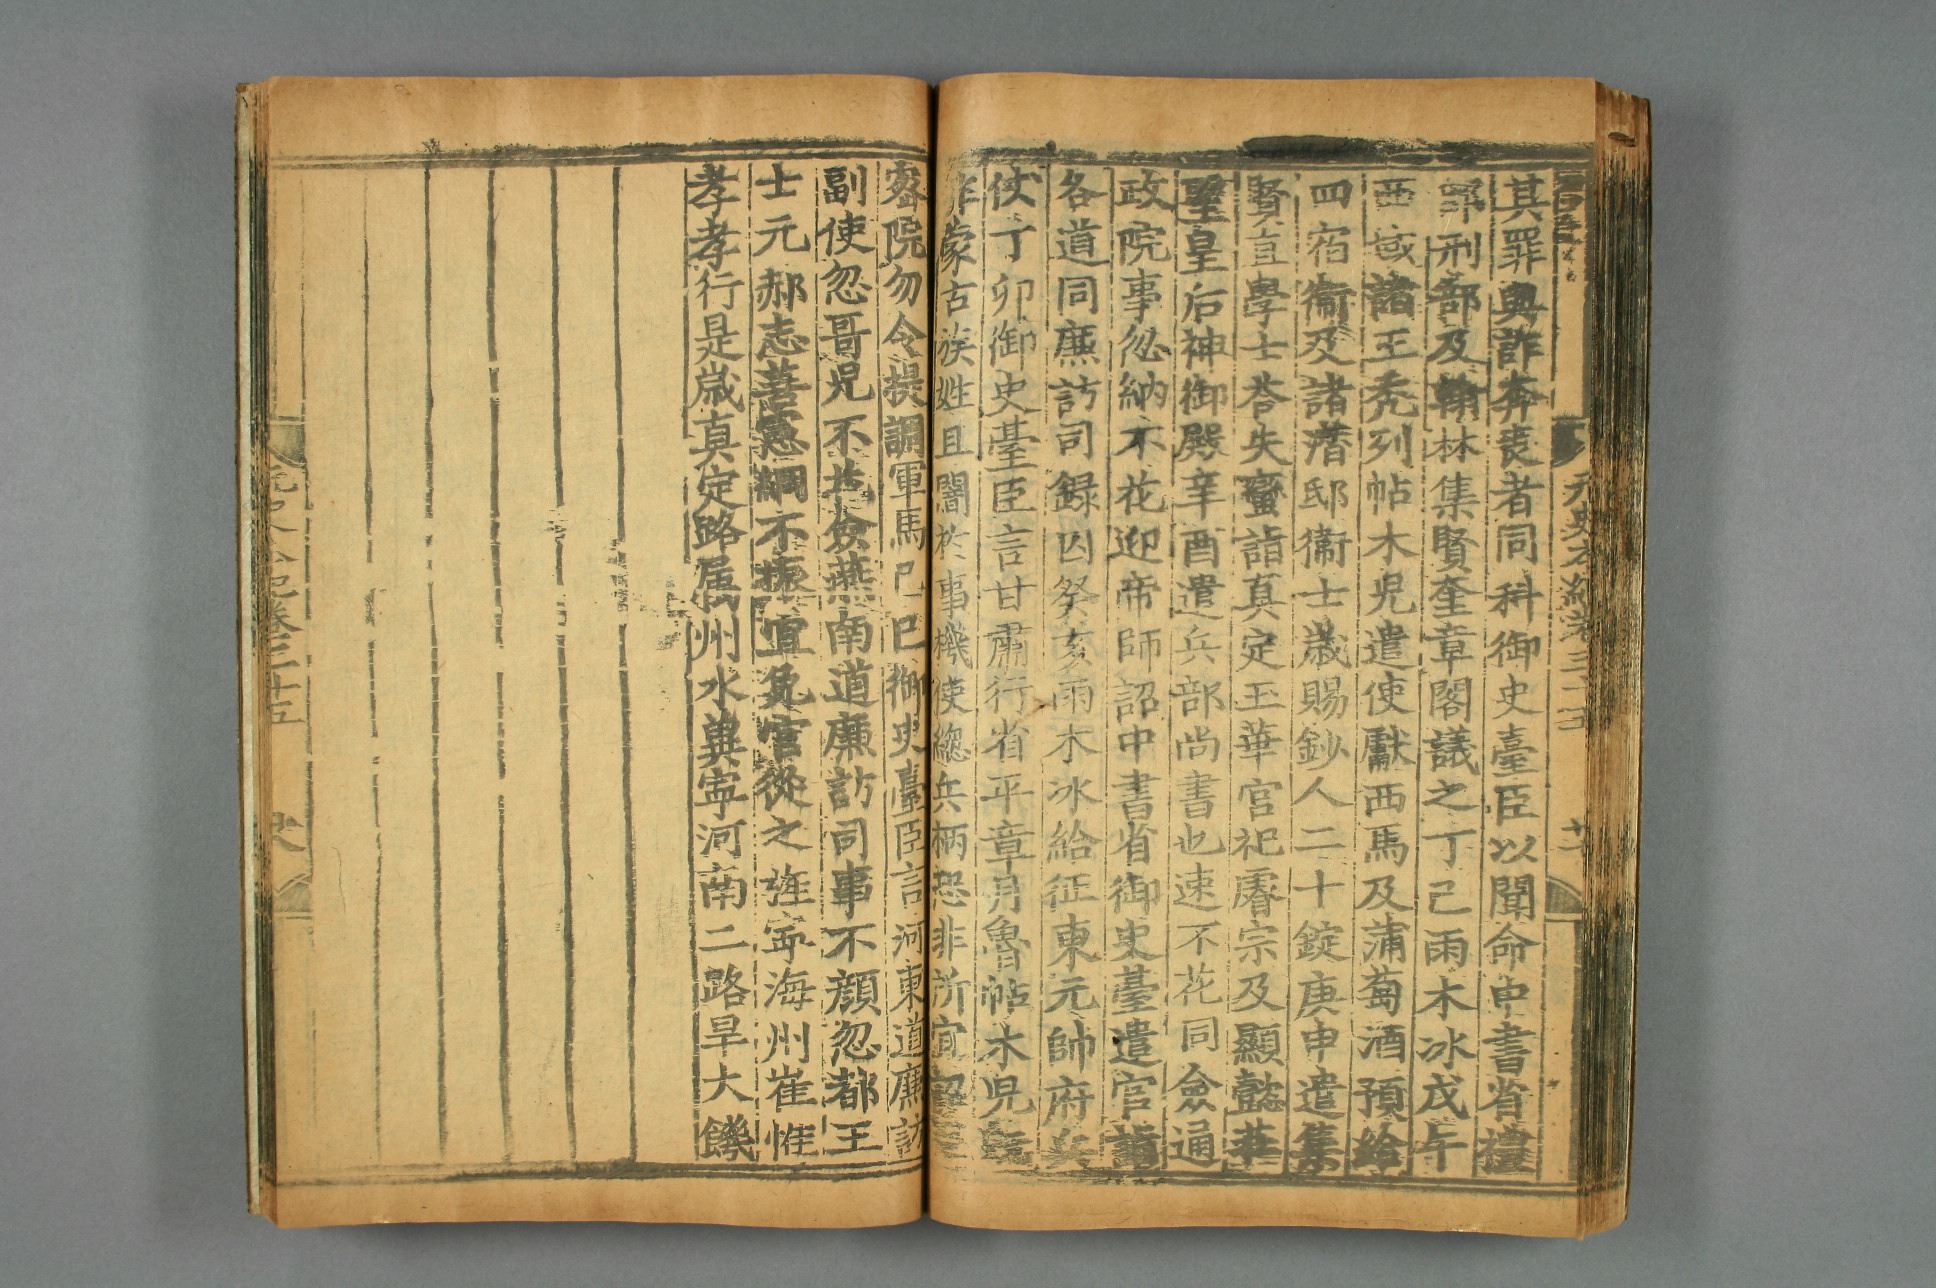 元史本紀卷三十五
其罪與詐奔喪者同科御史臺臣以聞命中書省禮
部刑部及翰林集賢奎章閣議之丁己雨木冰戊午
西域諸王禿列帖木兒遣使獻西馬及蒲萄酒預給
四宿衞及諸潛邸衞士歲賜鈔人二十錠庚申遣集
賢直學士荅失蠻詣真定玉華宮祀睿宗及顯懿莊
聖皇后神御殿辛酉遣兵部尚書也速不花同僉通
政院事忽納不花迎帝師詔中書省御史臺遣官詣
各道同廉訪司錄囚癸亥雨木冰給征東元帥府兵
仗丁卯御史臺臣言甘肅行省平章月魯帖木兒
非蒙古族姓且闇於事機使緫兵柄恐非所宜詔
宻院勿令提調軍馬己巳御史臺臣言河東道廉訪
副使忽哥兒不花僉燕南道廉訪司事不顔忽都王
士元郝志善憲綱不振宜免官從之旌寧海州崔惟
孝孝行是歲真定路屬州水冀寧河南二路旱大饑
元史本紀卷三十五